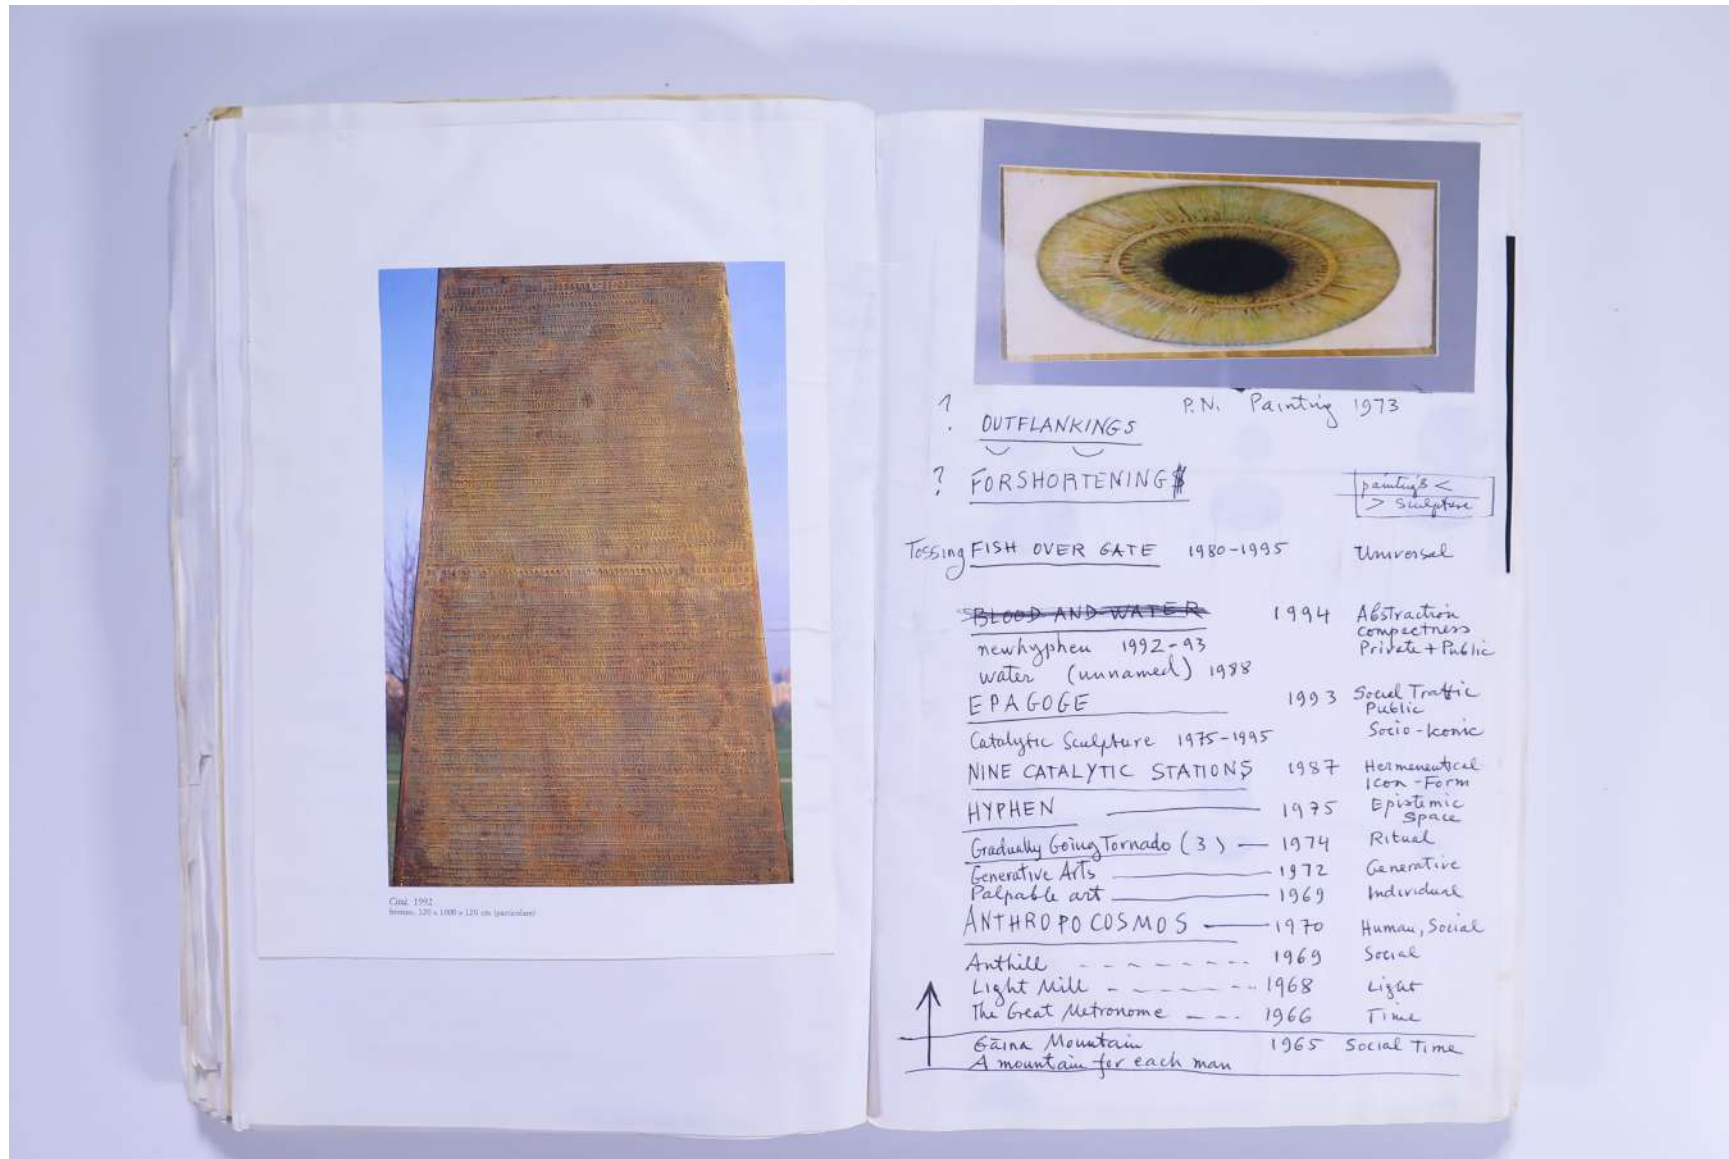 Città, 1992
bronzo, 120 x 1000 x 120 cm (particolare)
P.N. Painting 1973
? OUTFLANKINGS
? FORSHORTENING
paintings <
> sculpture
Tossing FISH OVER GATE 1980-1995 Universal
BLOOD AND WATER 1994 Abstraction
compectness
Private + Public
newhyphen 1992-93
water (unnamed) 1988
EPAGOGE 1993 Social Traffic
Public
Socio-Iconic
Catalytic Sculpture 1975-1995
NINE CATALYTIC STATIONS 1987 Hermeneutical
Icon-Form
HYPHEN 1975 Epistemic
Space
Gradually Going Tornado (3) — 1974 Ritual
Generative Arts — 1972 Generative
Palpable art — 1969 Individual
ANTHROPOCOSMOS — 1970 Human, Social
Anthill - - - - - - - - 1969 Social
Light Mill - - - - - - - - 1968 Light
The Great Metronome - - - 1966 Time
Găina Mountain 1965 Social Time
A mountain for each man